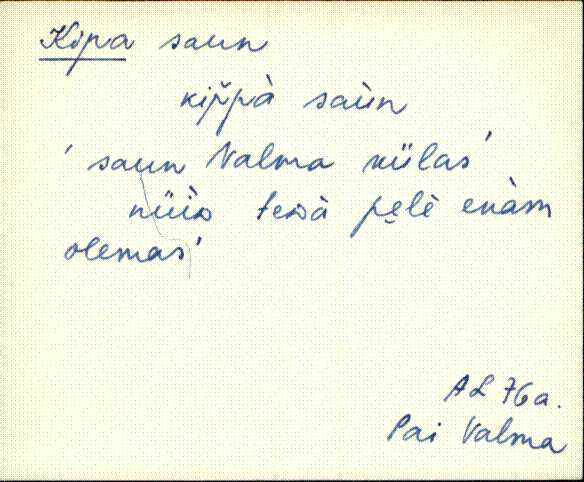 Kipa saun
kip̆pà saùn
' saun Valma külas'
nüìd tedà pęlè enàm
olemas'
AL 76a.
Pai Valma